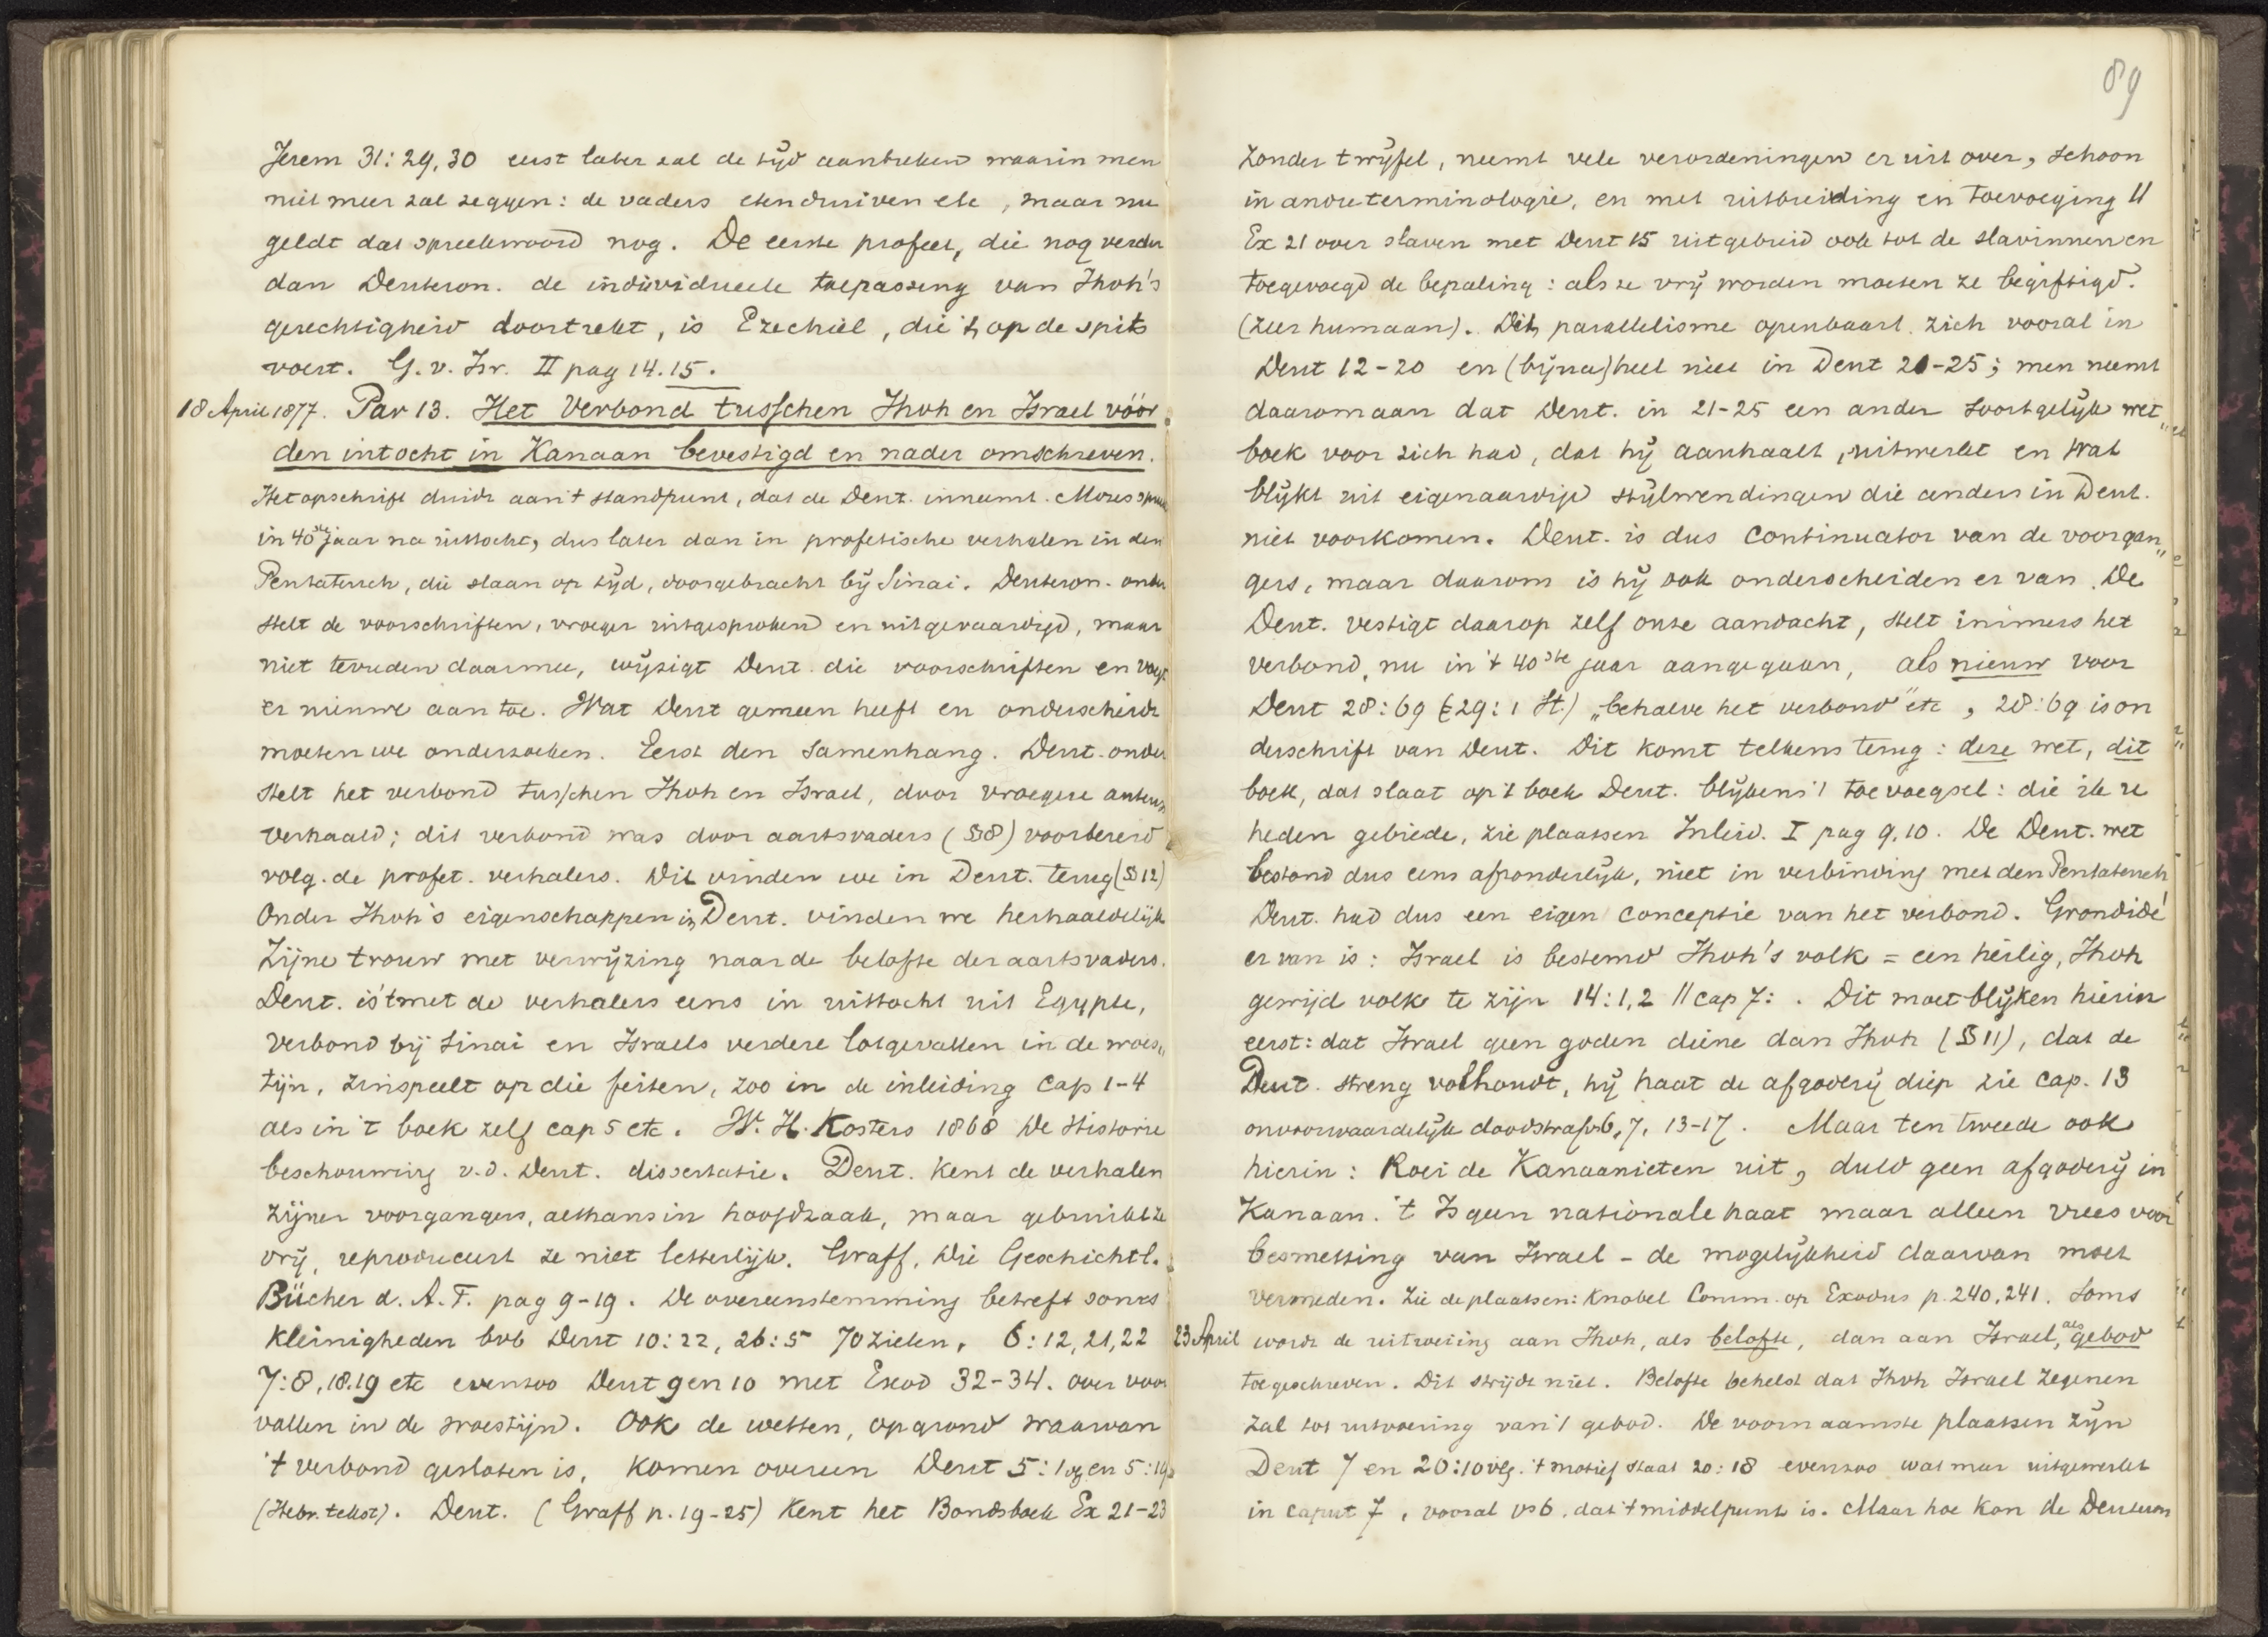 Jerem 31:29,30 eerst later zal de tijd aanbreken waarin men
niet meer zal zeggen: de vaders eten druiven etc, maar nu
geldt dat spreekwoord nog. De eerste profeet, die nog verder
dan Deuteron. de individueele toepassing van Jhvh's
gerechtigheid doortrekt, is Ezechiël, die 't op de spits
voert. G. v. Isr. II pag 14.15.
18 April 1877. Par 13. Het Verbond tusschen Jhvh en Israel vóór
den intocht in Kanaan bevestigd en nader omschreven.
Het opschrift duidt aan 't standpunt, dat de Deut. inneemt. Mozes
in 40ste jaar na uittocht, dus later dan in profetische verhalen in den
Pentateuch, die slaan op tijd, doorgebracht bij Sinai. Deuteron. onder
stelt de voorschriften, vroeger uitgesproken en uitgevaardigd, maar
niet tevreden daarmee, wijzigt Deut. die voorschriften en voegt
er nieuwe aan toe. Wat Deut gemeen heeft en onderscheidt
moeten we onderzoeken. Eerst den samenhang. Deut. onder
stelt het verbond tusschen Jhvh en Israel, door vroegere auteurs
verhaald; dit verbond was door aartsvaders (§8) voorbereid
volg. de profet. verhalers. Dit vinden we in Deut. terug (§12)
Onder Jhvh's eigenschappen in Deut. vinden we herhaaldelijk
Zijne trouw met verwijzing naar de belofte der aartsvaders.
Deut. is 't met de verhalers eens in uittocht uit Egypte,
verbond bij Sinai en Israels verdere lotgevallen in de woes„
tijn, zinspeelt op die feiten, zoo in de inleiding cap 1-4
als in 't boek zelf cap 5 etc. W. H. Kosters 1868 De Historie
beschouwing v.d. Deut. dissertatie. Deut. kent de verhalen
zijner voorgangers, althans in hoofdzaak, maar gebruikt ze
vrij, reproduceert ze niet letterlijk. Graff, Die Geschichtl.
Bücher d. A. T. pag 9-19. De overeenstemming betreft soms
kleinigheden bvb Deut 10:22, 26:5 70 zielen, 6:12,21,22
7:8,18.19 etc evenzoo Deut 9 en 10 met Exod 32-34. over voor
vallen in de woestijn. Ook de wetten, op grond waarvan
't verbond gesloten is, komen overeen Deut 5: en 5:
(Hebr. tekst). Deut. (Graff p. 19-25) kent het Bondsboek Ex 21-23
89
zonder twijfel, neemt vele verordeningen er uit over, schoon
in andre terminologie, en met uitbreiding en toevoeging ||
Ex 21 over slaven met Deut 15 uitgebreid ook tot de slavinnen en
toegevoegd de bepaling: als ze vrij worden moeten ze begiftigd.
(zeer humaan). Dit parallelisme openbaart zich vooral in
Deut 12-20 en (bijna) heel niet in Deut 21-25; men neemt
daarom aan dat Deut. in 21-25 een ander soortgelijk wet„
boek voor zich had, dat hij aanhaalt, uitwerkt en wat
blijkt uit eigenaardige stijlwendingen die anders in Deut.
niet voorkomen. Deut. is dus continuator van de voorgan„
gers, maar daarom is hij ook onderscheiden er van. De
Deut. vestigt daarop zelf onze aandacht, stelt immers het
verbond, nu in 't 40ste jaar aangegaan, als nieuw voor
Deut 28:69 (29:1 St.) „behalve het verbond" etc, 28:69 is on
derschrift van Deut. Dit komt telkens terug: deze wet, dit
boek, dat slaat op 't boek Deut. blijkens 't toevoegsel: die ik u
heden gebiede, zie plaatsen Inleid. I pag 9.10. De Deut. wet
bestond dus eens afzonderlijk, niet in verbinding met den Pentateuch
Deut. had dus een eigen conceptie van het verbond. Grondidé
er van is: Israel is bestemd Jhvh's volk = een heilig, Jhvh
gewijd volk te zijn 14:1,2 || cap 7: . Dit moet blijken hierin
eerst: dat Israel geen goden diene dan Jhvh (§11), dat de
Deut. streng volhoudt, hij haat de afgoderij diep zie cap. 13
onvoorwaardelijk doodstraf vs 6,7, 13-17. Maar ten tweede ook
hierin: Roei de Kanaanieten uit, duld geen afgoderij in
Kanaan. 't Is geen nationale haat maar alleen vrees voor
besmetting van Israel - de mogelijkheid daarvan moet
vermeden. Zie de plaatsen: Knobel Comm. op Exodus p. 240.241. Soms
23 April wordt de uitroeiing aan Jhvh, als belofte, dan aan Israel, als gebod
toegeschreven. Dit strijdt niet. Belofte behelst dat Jhvh Israel zegenen
zal tot uitvoering van 't gebod. De voornaamste plaatsen zijn
Deut 7 en 20:10 vlg. 't motief staat 20:18 evenzoo wat meer uitgewerkt
in caput 7, vooral vs 6. dat 't middelpunt is. Maar hoe kon de Deuteron